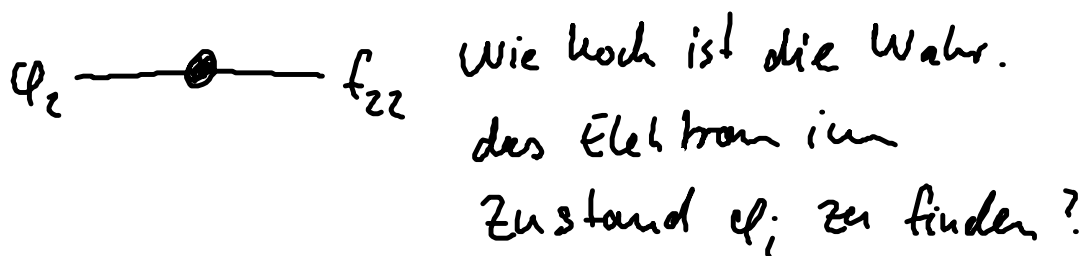 φ₂ f₂₂ Wie hoch ist die Wahr.
das Elektron im
Zustand φᵢ zu finden?